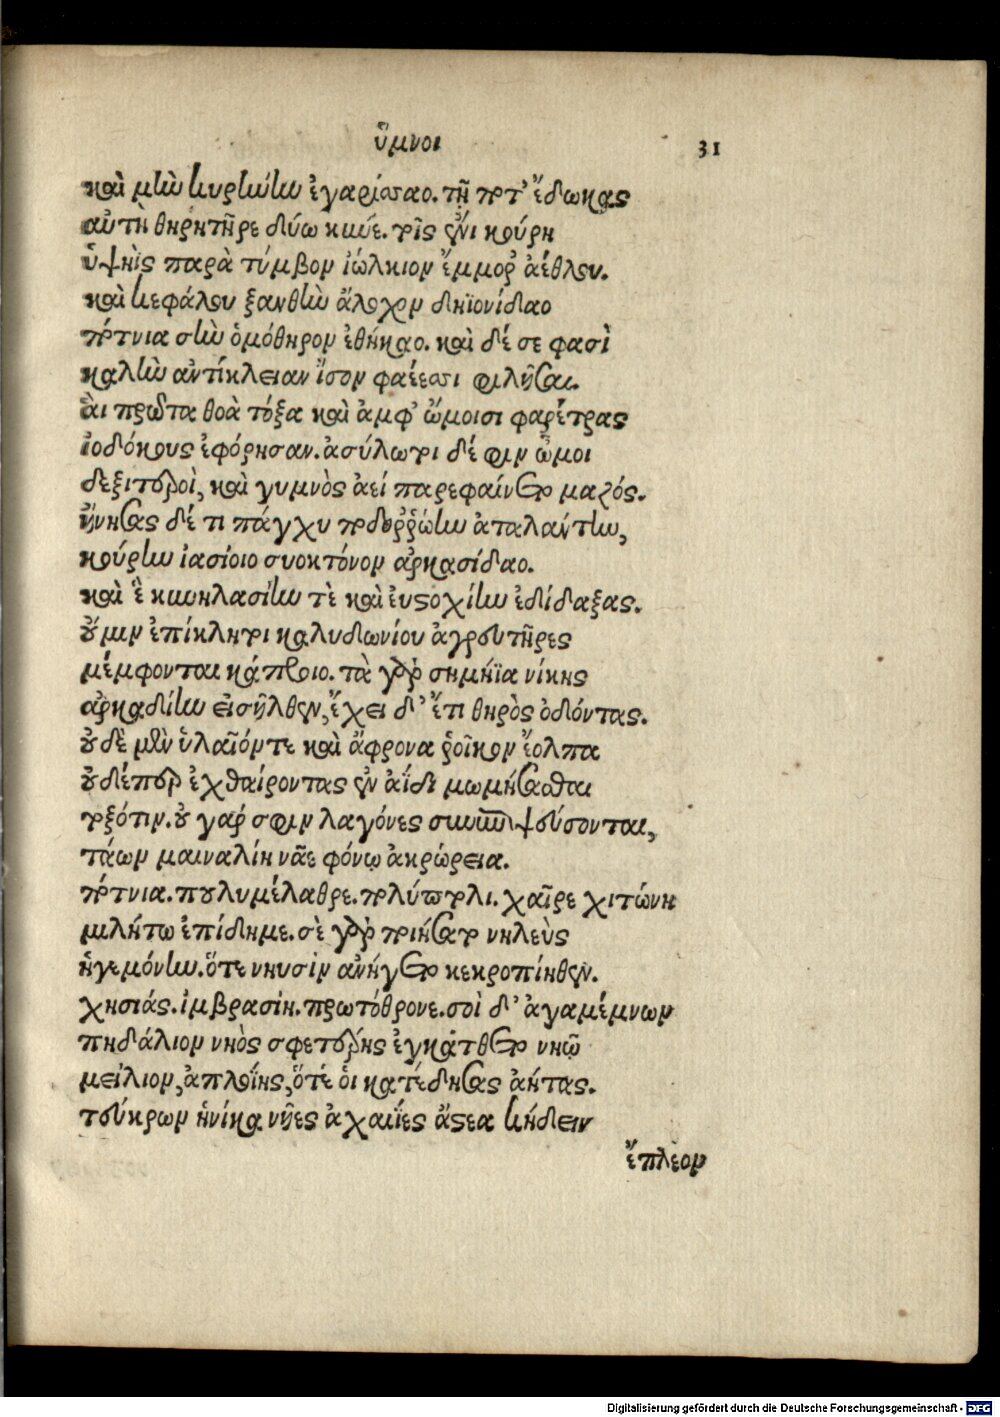 ὕμνοι 31
καὶ μὴν κυρήνην ἐταρίσσαο. τῇ ποτ' ἔδωκας
αὐτὴ θηρητῆρε δύω κύνε. τοῖς ἔνι κούρη
ὑψηῒς παρὰ τύμβον ἰώλκιον ἔμμορ' ἀέθλου.
καὶ κεφάλου ξανθὴν ἄλοχον δηϊονίδαο
πότνια σὴν ὁμόθηρον ἐθήκαο. καὶ δέ σε φασὶ
καλὴν ἀντίκλειαν ἴσον φαέεσσι φιλῆσαι.
αἳ πρῶτα θοὰ τόξα καὶ ἀμφ' ὤμοισι φαρέτρας
ἰοδόκους ἐφόρησαν. ἀσύλωτοι δέ φιν ὦμοι
δεξιτεροὶ, καὶ γυμνὸς ἀεί παρεφαίνετο μαζός.
ᾔνησας δέ τι πάγχυ ποδορρώην ἀταλάντην,
κούρην ἰασίοιο συοκτόνον ἀρκασίδαο.
καὶ ἓ κυνηλασίην τὲ καὶ ἐυστοχίην ἐδίδαξας.
οὔ μιν ἐπίκλητοι καλυδωνίου ἀγρευτῆρες
μέμφονται κάπροιο. τὰ γὰρ σημήϊα νίκης
ἀρκαδίην εἰσῆλθεν, ἔχει δ' ἔτι θηρὸς ὀδόντας.
οὐδὲ μὲν ὑλαῖόν τε καὶ ἄφρονα ῥοῖκον ἔολπα
οὐδέπερ ἐχθαίροντας ἐν ἄϊδι μωμήσασθαι
τοξότιν. οὐ γάρ σφιν λαγόνες συνεπιψεύσονται,
τάων μαιναλίη νᾶε φόνῳ ἀκρώρεια.
πότνια. πουλυμέλαθρε. πολύπτολι. χαῖρε χιτώνη
μιλήτω ἐπίδημε. σὲ γὰρ ποιήσατο νηλεὺς
ἡγεμόνην. ὅτε νηυσὶν ἀνήγετο κεκροπίηθεν.
χησιάς. ἰμβρασίη. πρωτόθρονε. σοὶ δ' ἀγαμέμνων
πηδάλιον νηὸς σφετέρης ἐγκάτθετο νηῷ
μείλιον, ἀπλοΐης, ὅτέ οἱ κατέδησας ἀήτας.
τεύκρων ἡνίκα νῆες ἀχαιΐες ἄστεα κήδειν
ἔπλεον
Digitalisierung gefördert durch die Deutsche Forschungsgemeinschaft - DFG